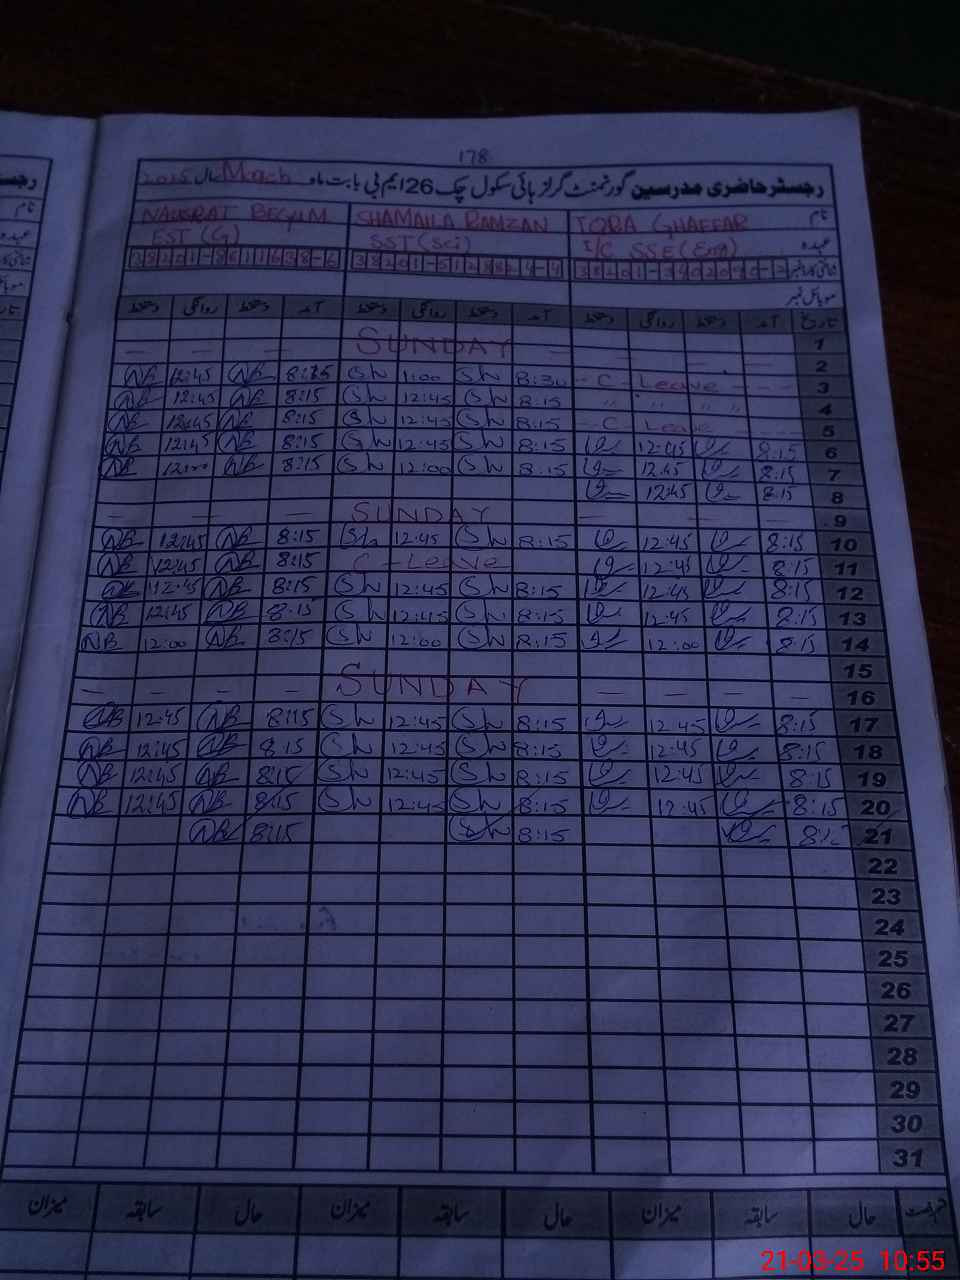 178
رجسٹر حاضری مدرسین گورنمنٹ گرلز ہائی سکول چک 26 ایم بی بابت ماہ March سال 2025
نام IQRA GHAFFAR SHAMAILA RAMZAN NAUSRAT BEGUM
عہدہ I/C SSE (Eng) SST (Sci) EST (G)
موبائل نمبر
تاریخ آمد دستخط روانگی دستخط آمد دستخط روانگی دستخط آمد دستخط روانگی دستخط
1
— — — SUNDAY — — — 2
NB 12:45 NB 8:15 Sh 1:00 Sh 8:30 - C - Leave - - - 3
NB 12:45 NB 8:15 Sh 12:45 Sh 8:15 〃 〃 〃 〃 4
NB 12:45 NB 8:15 Sh 12:45 Sh 8:15 - C - Leave - - - 5
NB 12:45 NB 8:15 Sh 12:45 Sh 8:15 12:45 8:15 6
NB 12:00 NB 8:15 Sh 12:00 Sh 8:15 12:45 8:15 7
12:45 8:15 8
— — — SUNDAY — — — 9
NB 12:45 NB 8:15 Sh 12:45 Sh 8:15 12:45 8:15 10
NB 12:45 NB 8:15 C - Leave 12:45 8:15 11
NB 12:45 NB 8:15 Sh 12:45 Sh 8:15 12:45 8:15 12
NB 12:45 NB 8:15 Sh 12:45 Sh 8:15 12:45 8:15 13
NB 12:00 NB 8:15 Sh 12:00 Sh 8:15 12:00 8:15 14
15
— — — — SUNDAY — — — — 16
NB 12:45 NB 8:15 Sh 12:45 Sh 8:15 12:45 8:15 17
NB 12:45 NB 8:15 Sh 12:45 Sh 8:15 12:45 8:15 18
NB 12:45 NB 8:15 Sh 12:45 Sh 8:15 12:45 8:15 19
NB 12:45 NB 8:15 Sh 12:45 Sh 8:15 12:45 8:15 20
NB 8:15 Sh 8:15 8:15 21
22
23
24
25
26
27
28
29
30
31
حال سابقہ میزان حال سابقہ میزان حال سابقہ میزان
21-03-25 10:55